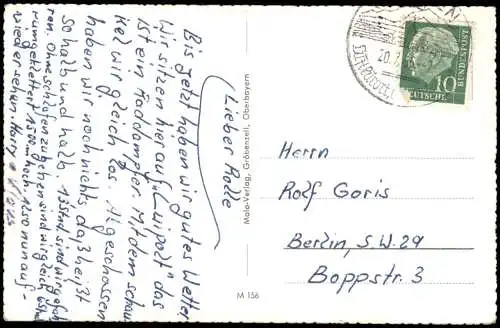 (Lieber Rolle
Bis jetzt haben wir gutes Wetter
Wir sitzen hier auf „Luipolt" das
ist ein Raddampfer. Mit dem schau
kel wir gleich los. Abgeschossen
haben wir noch nichts das heißt
so halb und halb. 13 Std. sind wir gefah
ren. Ohne schlafen zu gehen sind wir gleich
rumgeklettert 1500 m hoch. 1250 nun auf-
wiedersehen Harry
Mala-Verlag, Gröbenzell, Oberbayern
M 156
DEUTSCHE
BUNDESPOST
10
20.
Herrn
Rolf Goris
Berlin, S.W. 29
Boppstr. 3